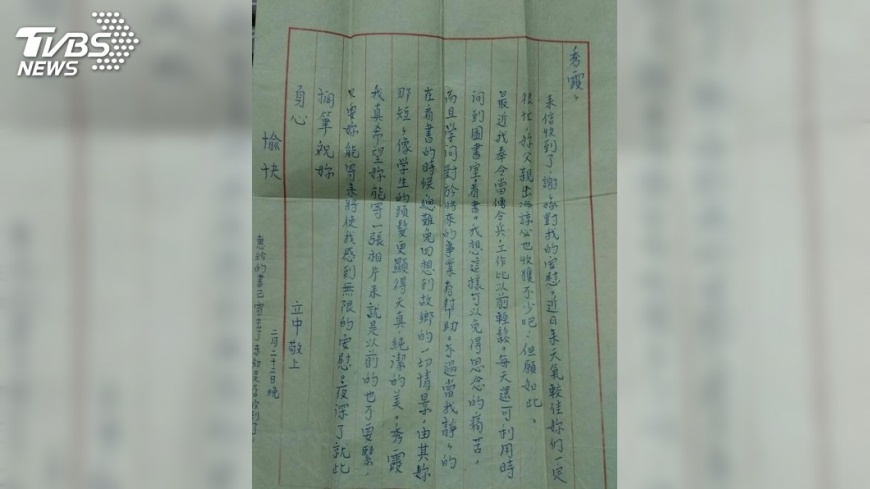 TVBS
NEWS
秀霞、
來信收到了,謝妳對我的安慰,近日來天氣較佳妳們一定
很忙,妳父親出海諒必也收獲不少吧!但願如此。
最近我奉令當傳令兵,工作比以前輕鬆。每天還可利用時
間到圖書室看書。我想這樣可以免得思念的痛苦,
而且学问對於將來的事業有幫助。不過當我靜々的
在看書的時候,總難免回想到故鄉的一切情景,由其妳
那短々像学生的頭髮更顯得天真,純潔的美。秀霞
我真希望妳能寄一張相片來就是以前的也不要緊,
只要妳能寄來將使我感到無限的安慰。夜深了就此
擱筆祝妳
身心
愉快
立中敬上
二月二十二日晚
惠的書已寄去了未知是否收到了